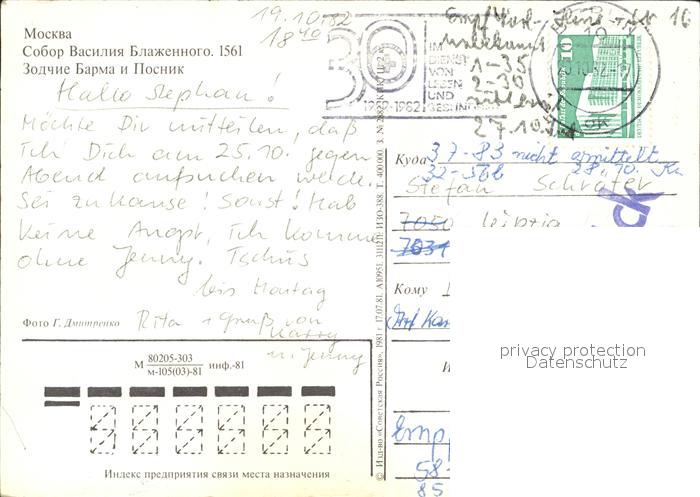 19.10.82
18 40
Москва
Собор Василия Блаженного. 1561
Зодчие Барма и Посник
Hallo Stephan!
Möchte Dir mitteilen, daß
ich Dich am 25.10. gegen
Abend aufsuchen werde.
Sei zu Hause! Sonst! Hab
keine Angst, ich komme
ohne Jenny. Tschüs
bis Montag
Rita + Gruß von
u. Jenny
Фото Г. Дмитренко
М 80205-303
м-105(03)-81 инф.-81
Индекс предприятия связи места назначения
© Изд-во «Советская Россия», 1981 г. 17.07.81. А10951. 311121. ИЗО-388. Т. 400 000. З. №
IM
DIENST
VON
LEBEN
UND
GESUND
1952-1982
10
unbekannt
1-35
2-36
27.10.
Куда
37-83 nicht ermittelt
32-56b 28.10.
Stefan Schräfer
7050 Leipzig
7031
ck
Кому
privacy protection
Datenschutz
И
Emp
58-
85